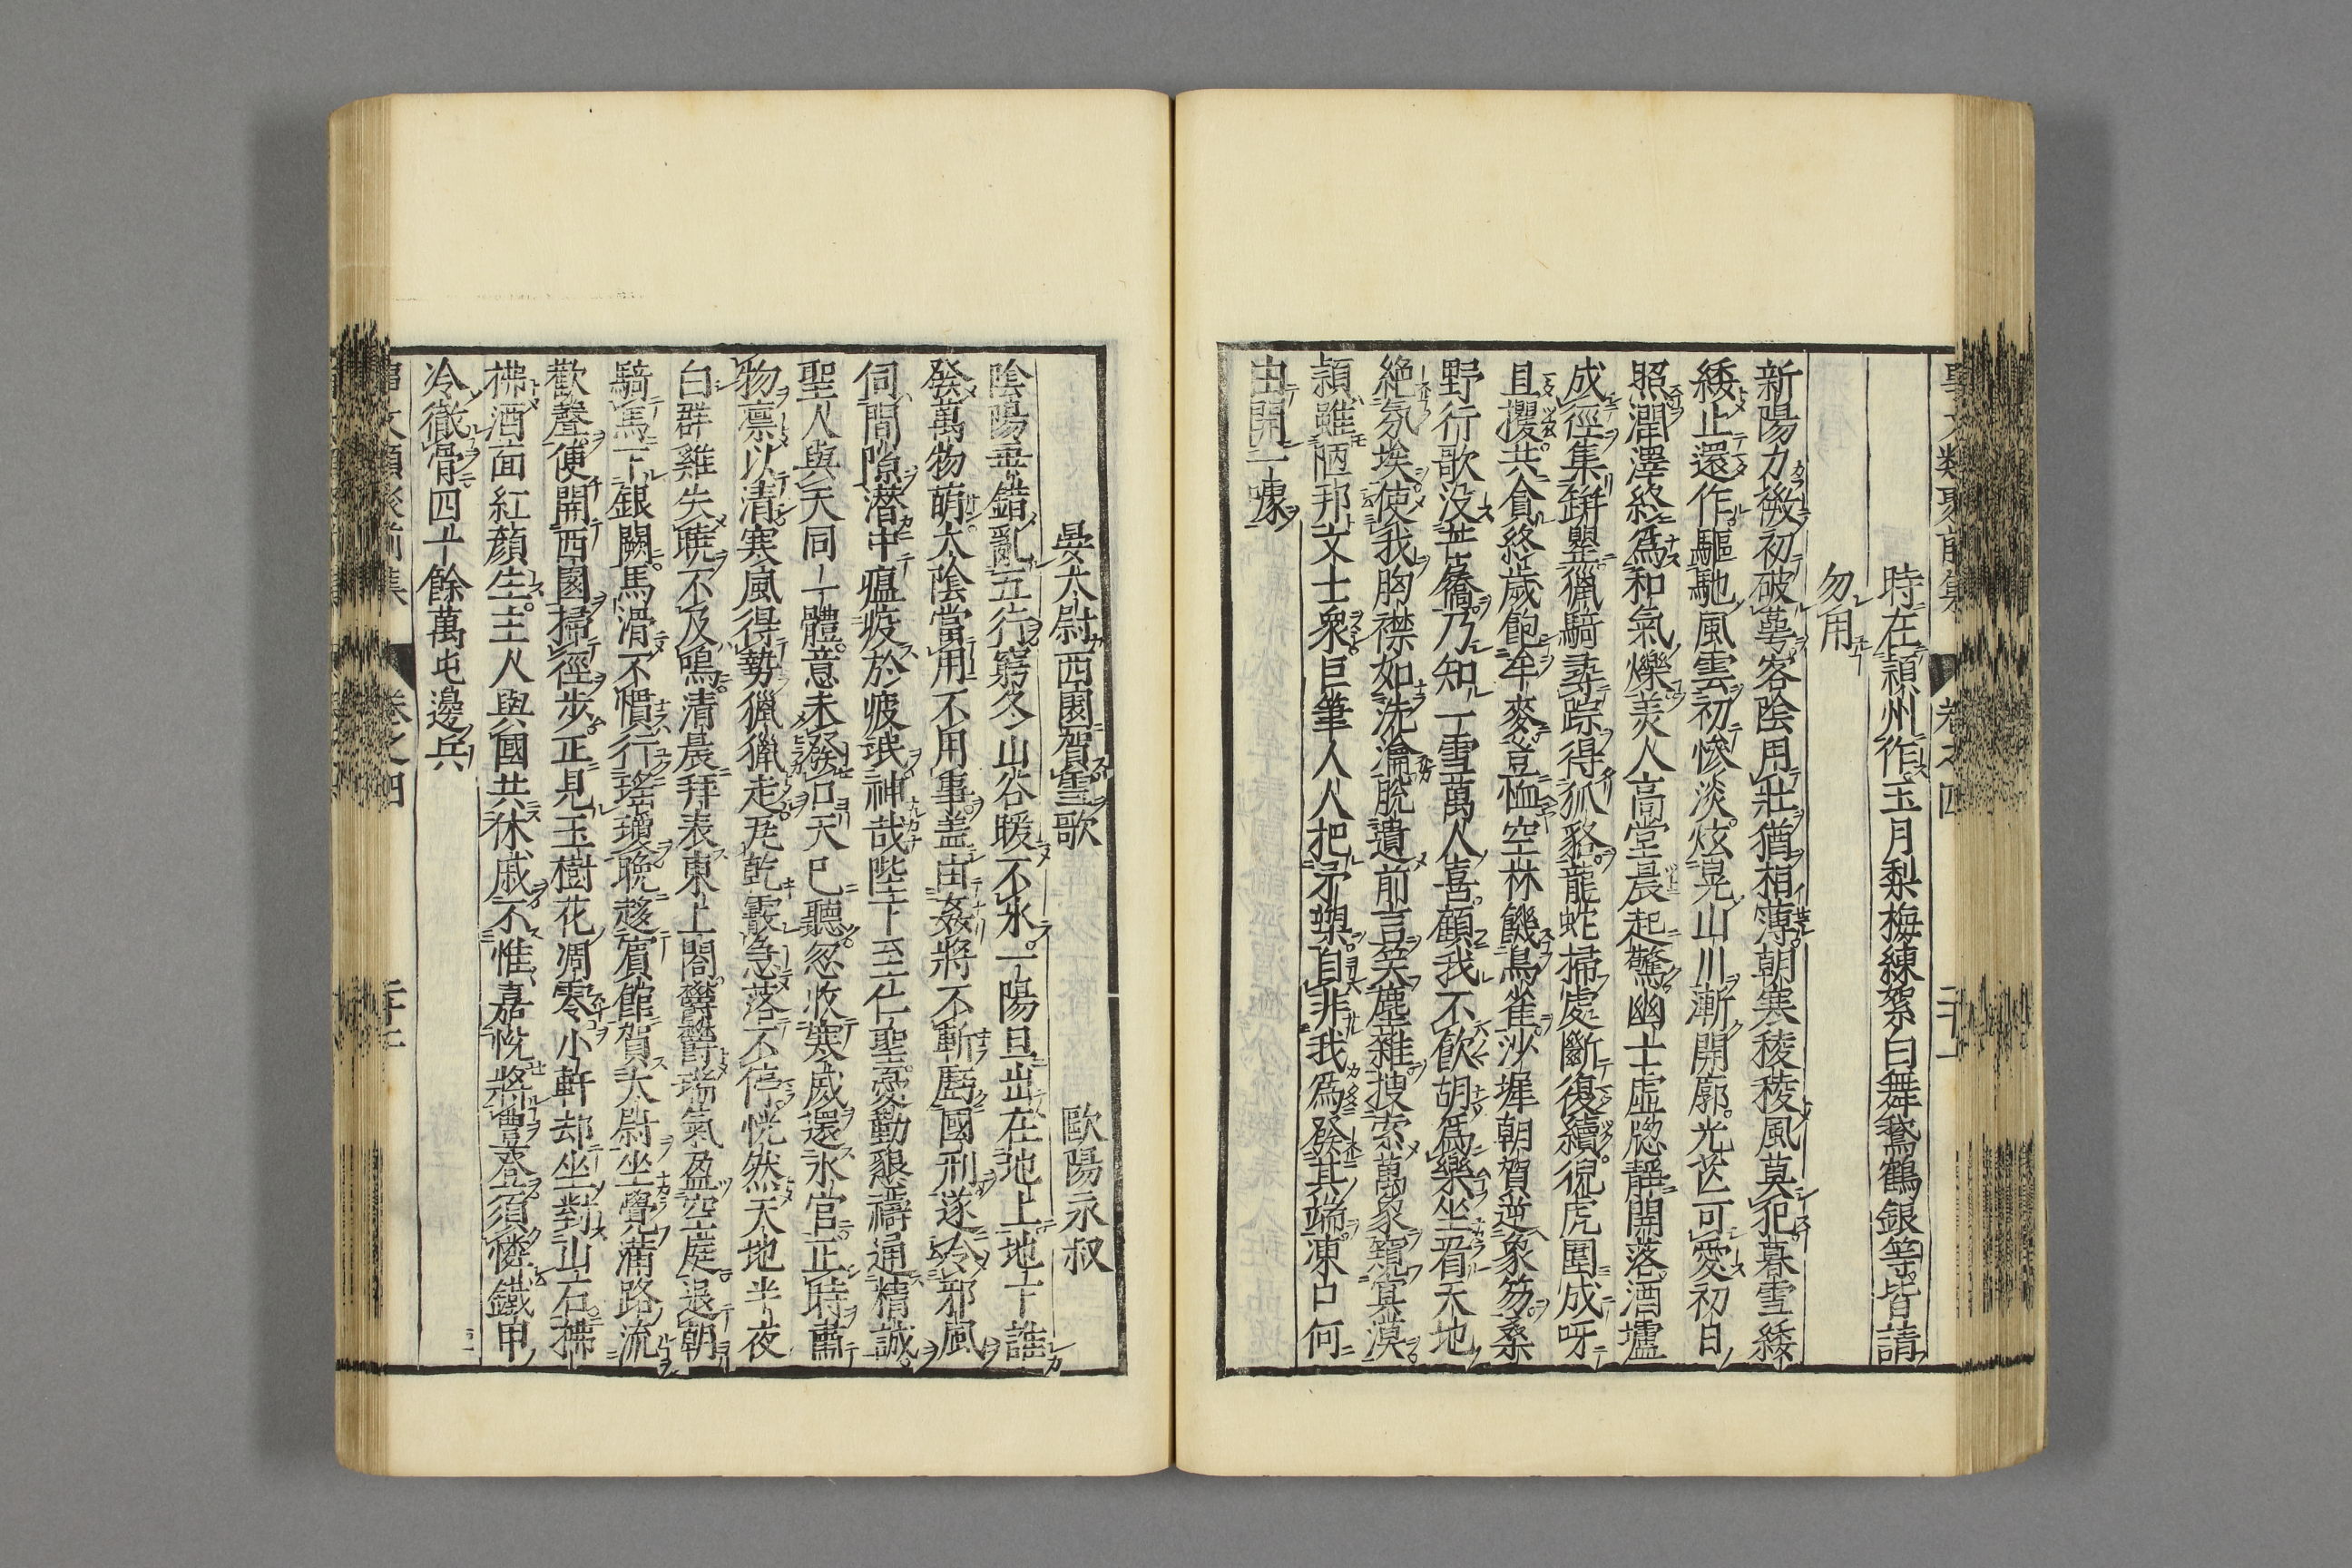 時在潁州作玉月梨梅練絮白舞鵞鶴銀等皆請
勿用
新陽力微初破萼客陰用壯猶相薄朝寒稜稜風莫犯暮雪緌
緌止還作驅馳風雲初慘淡炫晃山川漸開廓光芒可愛初日
照潤澤終爲和氣爍美人高堂晨起驚幽士虛牎静聞落酒壚
成徑集缾罌獵騎尋踪得狐貉龍蛇掃處斷復續猊虎團成呀
且攫共貪終歲飽牟麥豈恤空林饑鳥雀沙墀朝賀逆象笏桑
野行歌没芒屩乃知一雪萬人喜顧我不飲胡爲樂坐看天地
絶氛埃使我胸襟如洗瀹脫遺前言笑塵雜搜索萬象窺冥漠
潁雖陋邦文士衆巨筆人人把矛槊自非我爲發其端凍口何
由開一噱
晏太尉西園賀雪歌
歐陽永叔
陰陽乖錯亂五行窮冬山谷暖不氷一陽且出在地上地下誰
發萬物萌太陰當用不用事蓋由姦將不斬虧國刑遂令邪風
伺間隙潜中瘟疫於疲氓神哉陛下至仁聖憂勤懇禱通精誠
聖人與天同一體意未發口天已聽忽收寒威還氷官正時肅
物凛以清寒風得勢獵獵走瓦乾霰急落不停恍然天地半夜
白群雞失曉不及鳴清晨拜表東上閤鬱鬱瑞氣盈空庭退朝
騎馬下銀闕馬滑不慣行瑤瓊晚趍賓館賀太尉坐覺滿路流
歡聲便開西園掃徑步正見玉樹花凋零小軒却坐對山石拂
拂酒面紅顔生主人與國共休戚不惟嘉悅將豐登須憐鐵甲
冷徹骨四十餘萬屯邊兵
卷之四